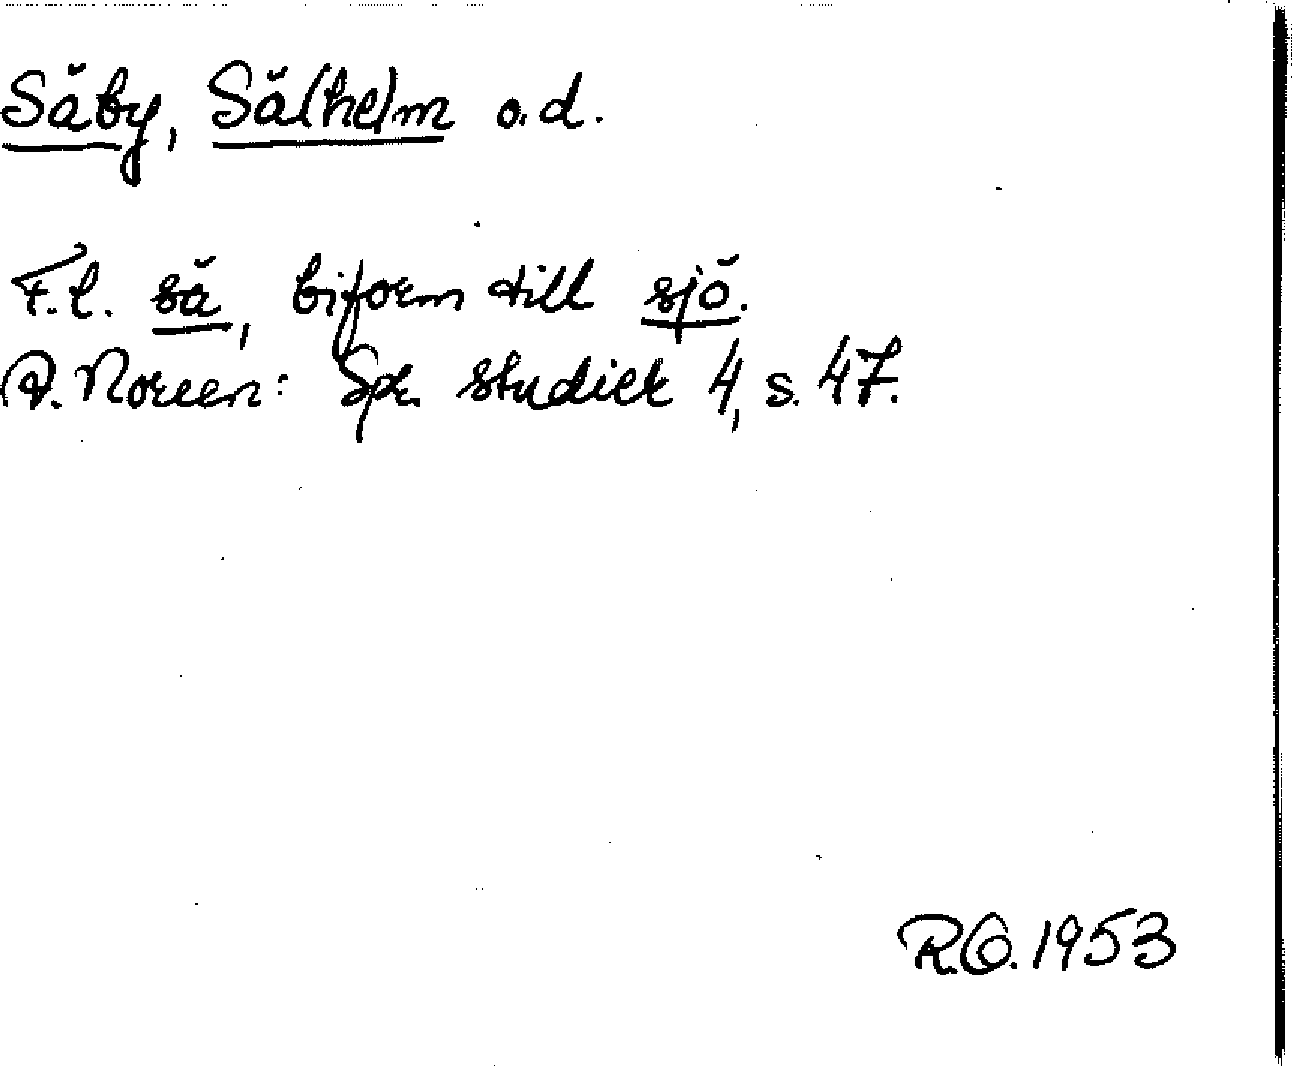 Säby, Sä(he)m o.d.
F.l. sä, biform till sjö.
A. Noreen: Spr. studier 4, s. 47.
R.O. 1953